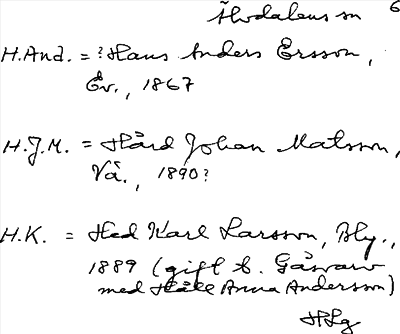 Älvdalens sn 6
H.And. = ? Hans Anders Ersson,
Ev., 1867
H.J.M. = Hård Johan Matsson,
Vå., 1890?
H.K. = Hed Karl Larsson, Bly.,
1889 (gift t. Gåsvarv
med Håll Anna Andersson)
HLg